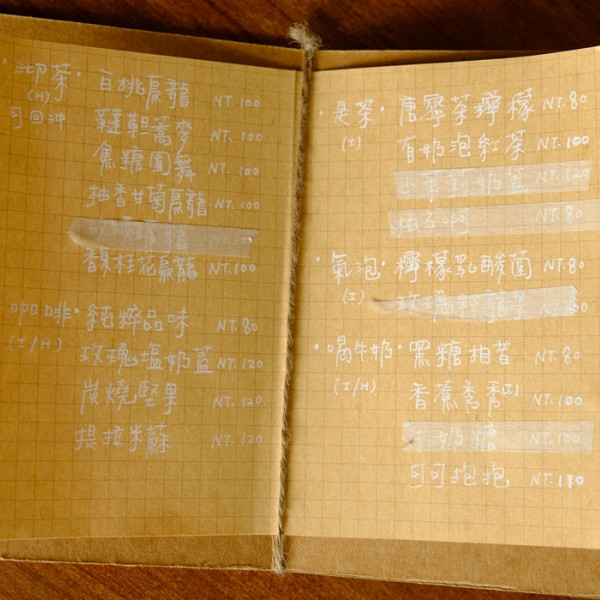 ·沏茶· 百桃烏龍 NT. 100
(H) 韃靼蕎麥 NT. 100
可回沖
焦糖圓舞 NT. 100
柚香甘菊烏龍 NT. 100
馥桂花烏龍 NT. 100
咖啡· 純粹品味 NT. 80
(I/H) 玫瑰塩奶蓋 NT. 120
炭燒堅果 NT. 120
提拉米蘇 NT. 120
·是茶· 唐寧茶檸檬 NT. 80
(I) 有奶泡紅茶 NT. 100
奶蓋 NT. 120
柚子 NT. 80
·氣泡· 檸檬乳酸菌 NT. 80
(I) 玫瑰
·喝牛奶· 黑糖相昔 NT. 80
(I/H) 香蕉秀秀 NT. 100
奶糖 NT. 100
可可抱抱 NT. 110